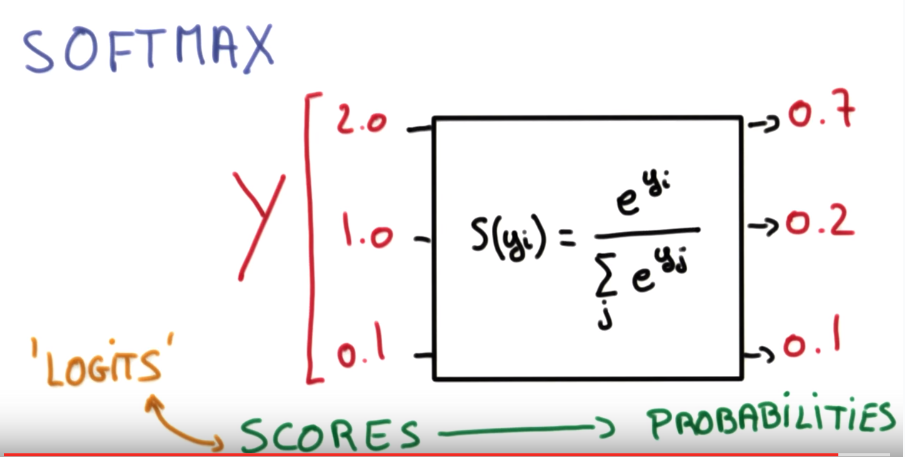 SOFTMAX
Y
2.0
1.0
0.1
S(yi) = e^yi / ∑j e^yj
0.7
0.2
0.1
'LOGITS'
SCORES → PROBABILITIES